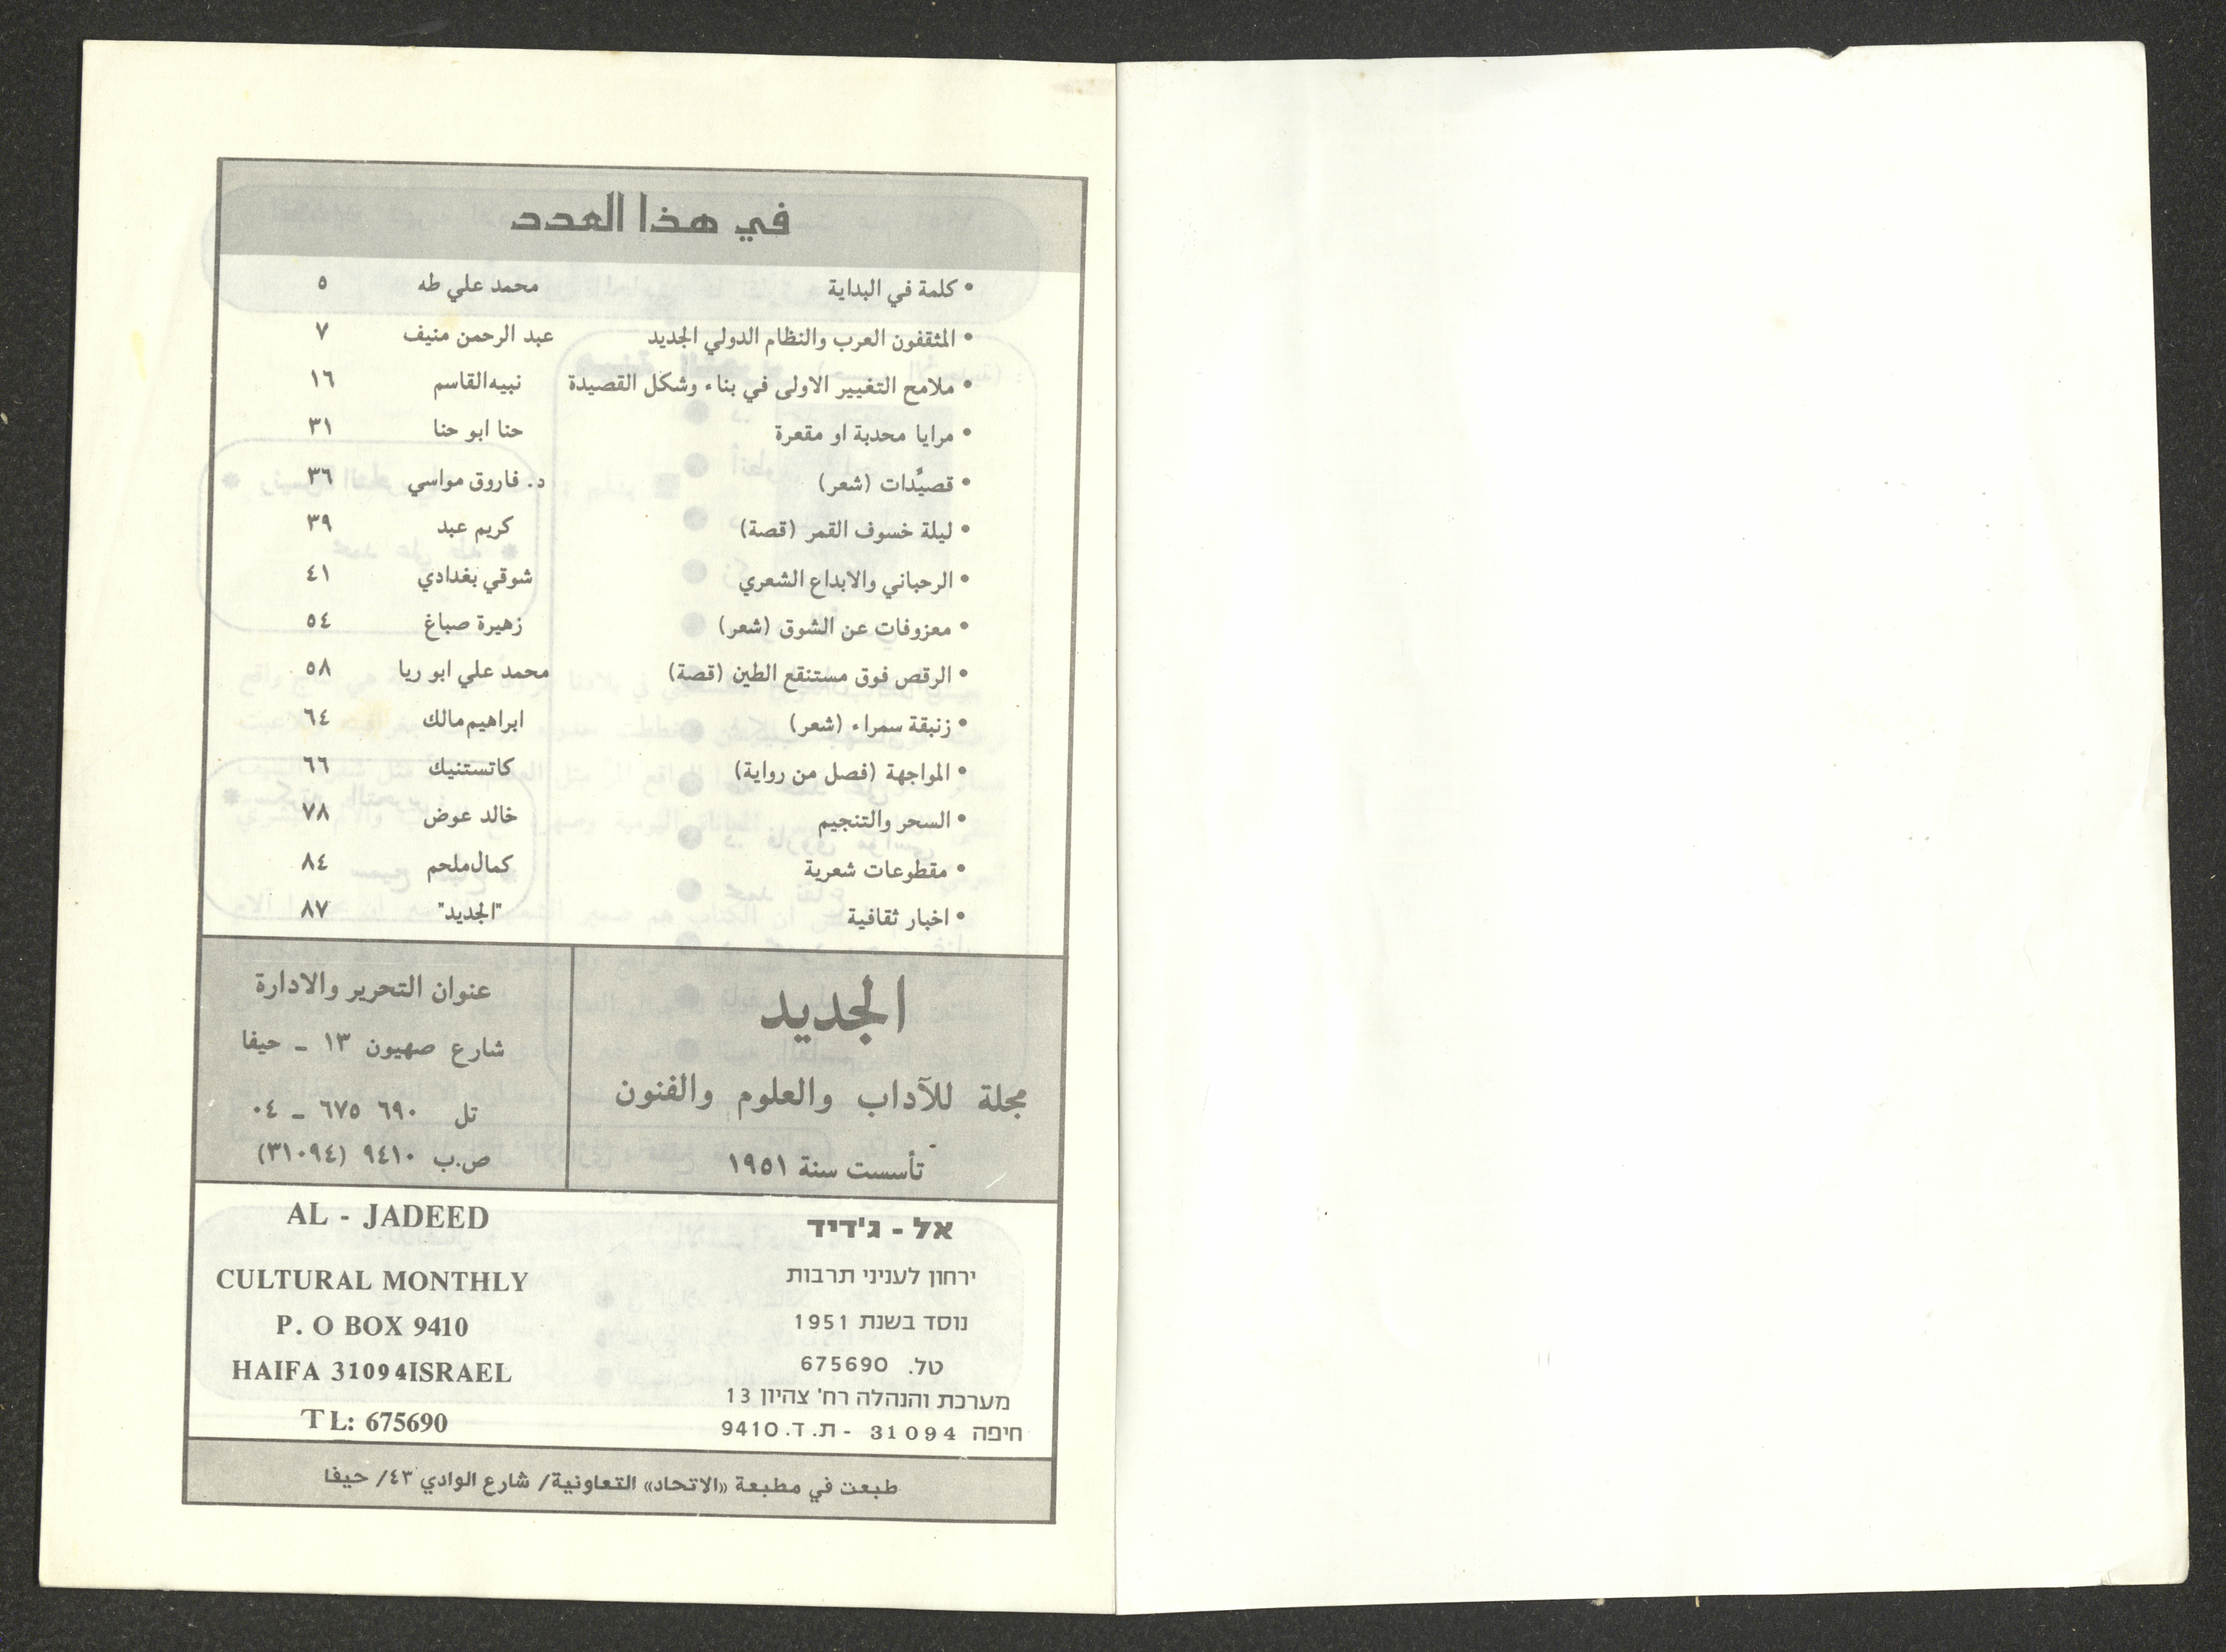 في هذا العدد
• كلمة في البداية محمد علي طه ٥
• المثقفون العرب والنظام الدولي الجديد عبد الرحمن منيف ٧
• ملامح التغيير الاولى في بناء وشكل القصيدة نبيه القاسم ١٦
• مرايا محدبة او مقعرة حنا ابو حنا ٣١
• قصيّدات (شعر) د. فاروق مواسي ٣٦
• ليلة خسوف القمر (قصة) كريم عبد ٣٩
• الرحباني والابداع الشعري شوقي بغدادي ٤١
• معزوفات عن الشوق (شعر) زهيرة صباغ ٥٤
• الرقص فوق مستنقع الطين (قصة) محمد علي ابو ريا ٥٨
• زنبقة سمراء (شعر) ابراهيم مالك ٦٤
• المواجهة (فصل من رواية) كاتستنيك ٦٦
• السحر والتنجيم خالد عوض ٧٨
• مقطوعات شعرية كمال ملحم ٨٤
• اخبار ثقافية "الجديد" ٨٧
الجديد
مجلة للآداب والعلوم والفنون
تأسست سنة ١٩٥١
عنوان التحرير والادارة
شارع صهيون ١٣ - حيفا
تل ٦٩٠ ٦٧٥ - ٠٤
ص.ب ٩٤١٠ (٣١٠٩٤)
אל - ג'דיד
ירחון לעניני תרבות
נוסד בשנת 1951
טל. 675690
מערכת והנהלה רח' צהיון 13
חיפה 31094 - ת.ד. 9410
AL - JADEED
CULTURAL MONTHLY
P. O BOX 9410
HAIFA 31094ISRAEL
TL: 675690
طبعت في مطبعة «الاتحاد» التعاونية/ شارع الوادي ٤٣/ حيفا